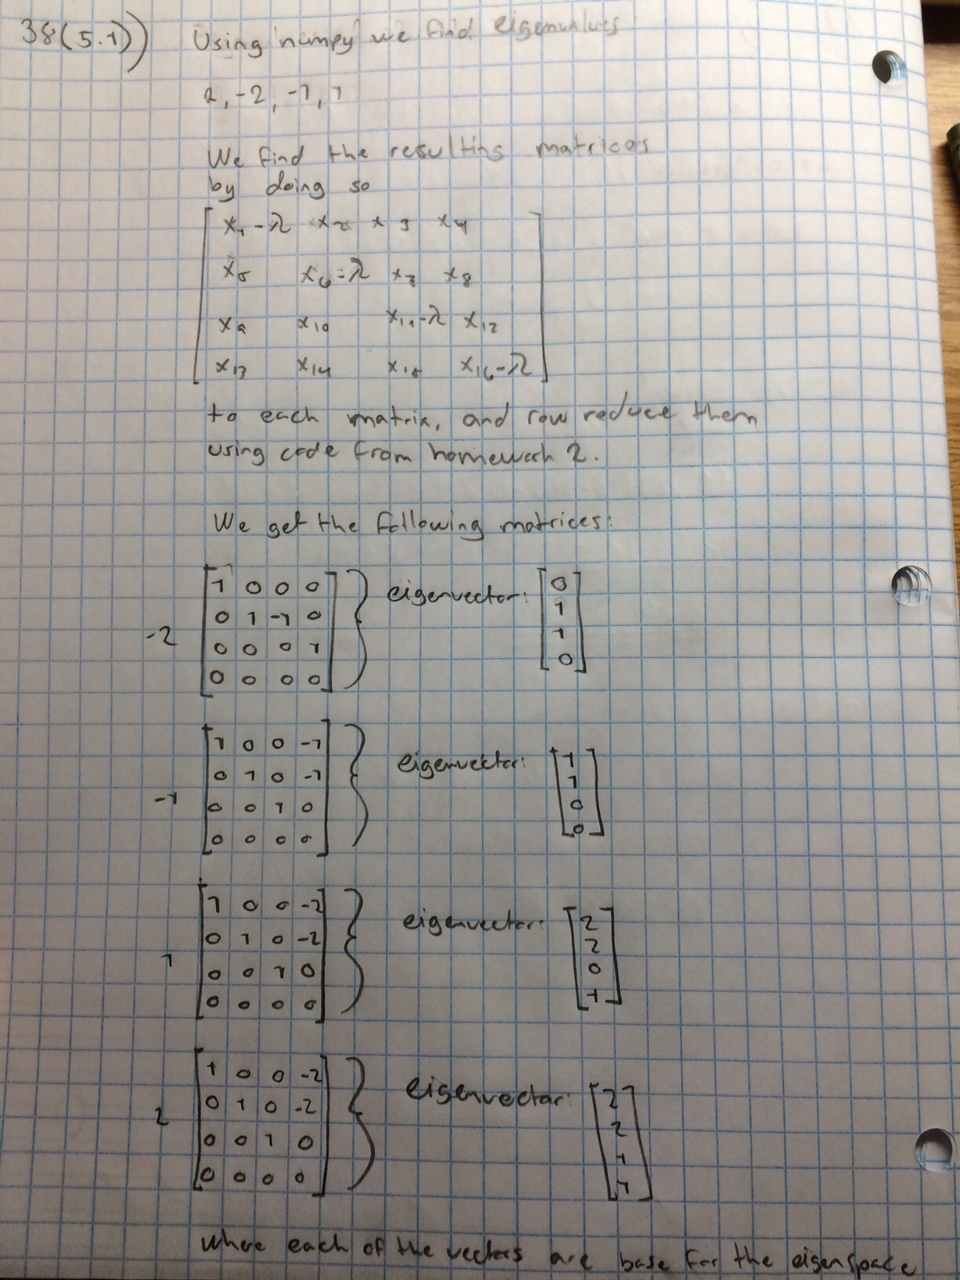 38(5.1)) Using numpy we find eigenvalues
2, -2, -1, 1
We find the resulting matrices
by doing so
x1-λ x2 x3 x4
x5 x6-λ x7 x8
x9 x10 x11-λ x12
x13 x14 x15 x16-λ
to each matrix, and row reduce them
using code from homework 2.
We get the following matrices:
-2
1 0 0 0
0 1 -1 0
0 0 0 1
0 0 0 0
eigenvector:
0
1
1
0
-1
1 0 0 -1
0 1 0 -1
0 0 1 0
0 0 0 0
eigenvector:
1
1
0
0
1
1 0 0 -2
0 1 0 -2
0 0 1 0
0 0 0 0
eigenvector:
2
2
0
1
2
1 0 0 -2
0 1 0 -2
0 0 1 0
0 0 0 0
eigenvector:
2
2
1
1
where each of the vectors are base for the eigenspace